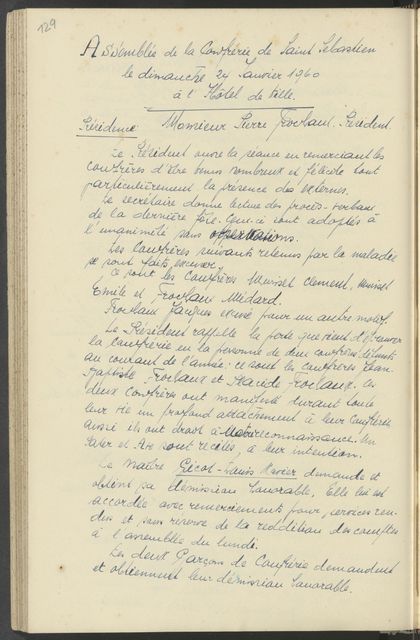 129
Assemblée de la Confrérie de Saint Sébastien
le dimanche 24 Janvier 1960
à l'Hôtel de Ville
Présidence Monsieur Pierre Frochaux. Président
Le Président ouvre la séance en remerciant les
confrères d'être venus nombreux et félicite tout
particulièrement la présence des externes.
Le secrétaire donne lecture des procès-verbaux
de la dernière fête. Ceux-ci sont adoptés à
l'unanimité sans observations.
Les Confrères suivants retenus par la maladie
se sont faits excuser.
Ce sont les Confrères Muriset Clément, Muriset
Emile et Frochaux Médard.
Frochaux Jacques excusé pour un autre motif.
Le Président rappelle la perte que vient d'éprouver
la Confrérie en la personne de deux confrères défunts
au courant de l'année: ce sont les confrères Jean-
Baptiste Frochaux et Placide Frochaux. Ces
deux Confrères ont manifesté durant toute
leur vie un profond attachement à leur Confrérie
aussi ils ont droit à notre reconnaissance. Un
Pater et Ave sont récités à leur intention.
Le Maître Gicot-Denis Xavier demande et
obtient sa démission honorable. Elle lui est
accordée avec remerciements pour services ren-
dus et sous réserve de la reddition des comptes
à l'assemblée du lundi.
Les deux Garçons de Confrérie demandent
et obtiennent leur démission honorable.